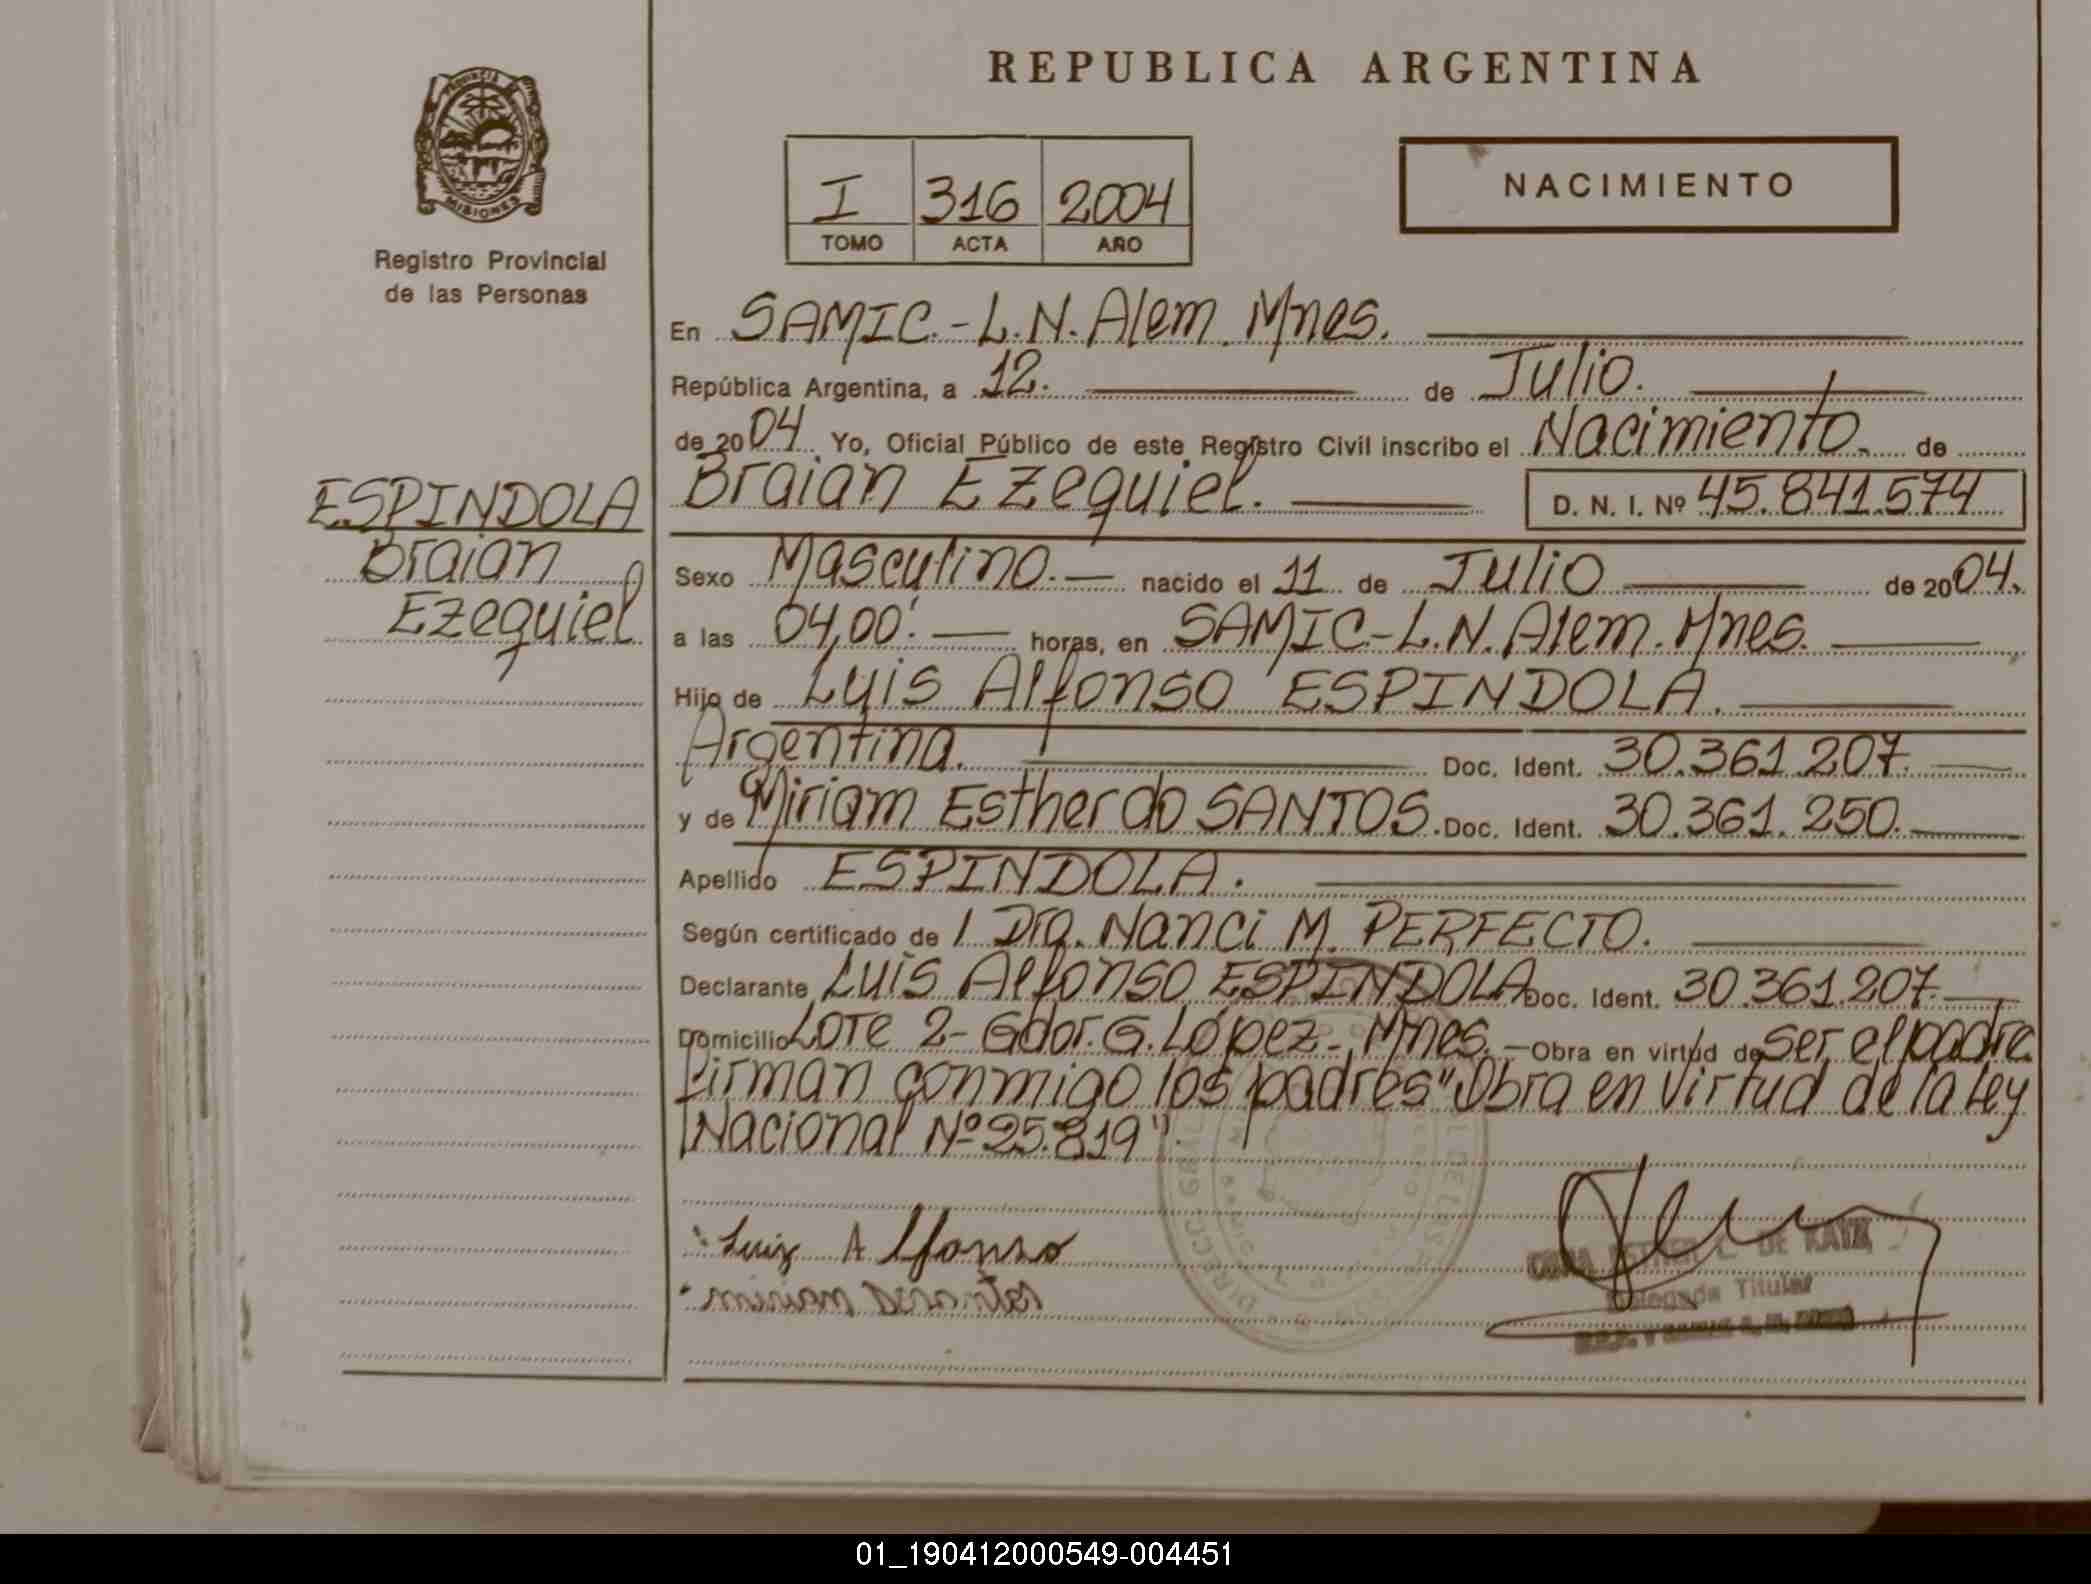 REPUBLICA ARGENTINA
PROVINCIA
MISIONES
Registro Provincial
de las Personas
I 316 2004
TOMO ACTA AÑO
NACIMIENTO
En SAMIC.-L.N. Alem. Mnes.
República Argentina, a 12. de Julio.
de 2004 Yo, Oficial Público de este Registro Civil inscribo el Nacimiento. de
Braian Ezequiel. D. N. I. Nº 45.841.574
ESPINDOLA
Braian
Ezequiel
Sexo Masculino.— nacido el 11 de Julio de 2004.
a las 04,00'. horas, en SAMIC-L.N. Alem. Mnes.
Hijo de Luis Alfonso ESPINDOLA.
Argentina. Doc. Ident. 30.361.207.
y de Miriam Esther do SANTOS. Doc. Ident. 30.361.250.
Apellido ESPINDOLA.
Según certificado de / Dra. Nanci M. PERFECTO.
Declarante Luis Alfonso ESPINDOLA Doc. Ident. 30.361.207.
Domicilio Lote 2- Gdor. G. López-, Mnes. — Obra en virtud de ser el padre
Firman conmigo los padres "Obra en virtud de la Ley
Nacional Nº 25.819".
Luiz A lfonso
DE KATZ
Delegada Titular
01_190412000549-004451